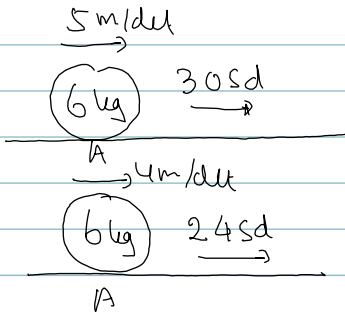 5 m/det
6 kg 30 Sd
A
4 m/det
6 kg 24 Sd
A